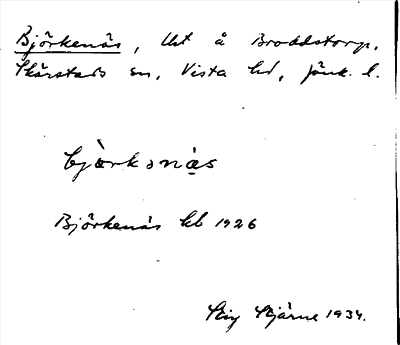 Björkenäs, lht å Broddstorp,
Skärstads sn, Vista hd, Jönk. l.
bjàrkənạs
Björkenäs kb 1926
Stig Stjärne 1934.